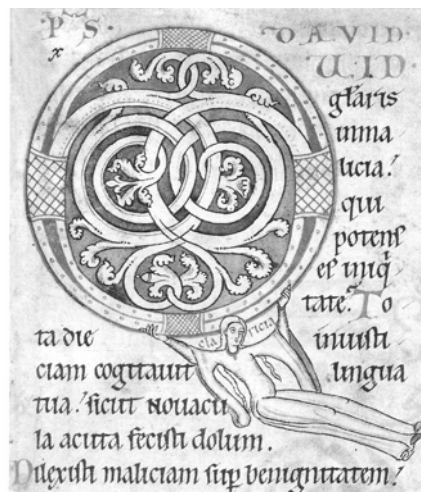 PS. DAVID.
x
QU.ID
gl̄aris
inma
licia.
qui
potens
es iniq̇
tate. To
claricia
ta die iniusti
ciam cogitauit lingua
tua. sicut nouacu
la acuta fecisti dolum.
Dilexisti maliciam sup̱ benignitatem.